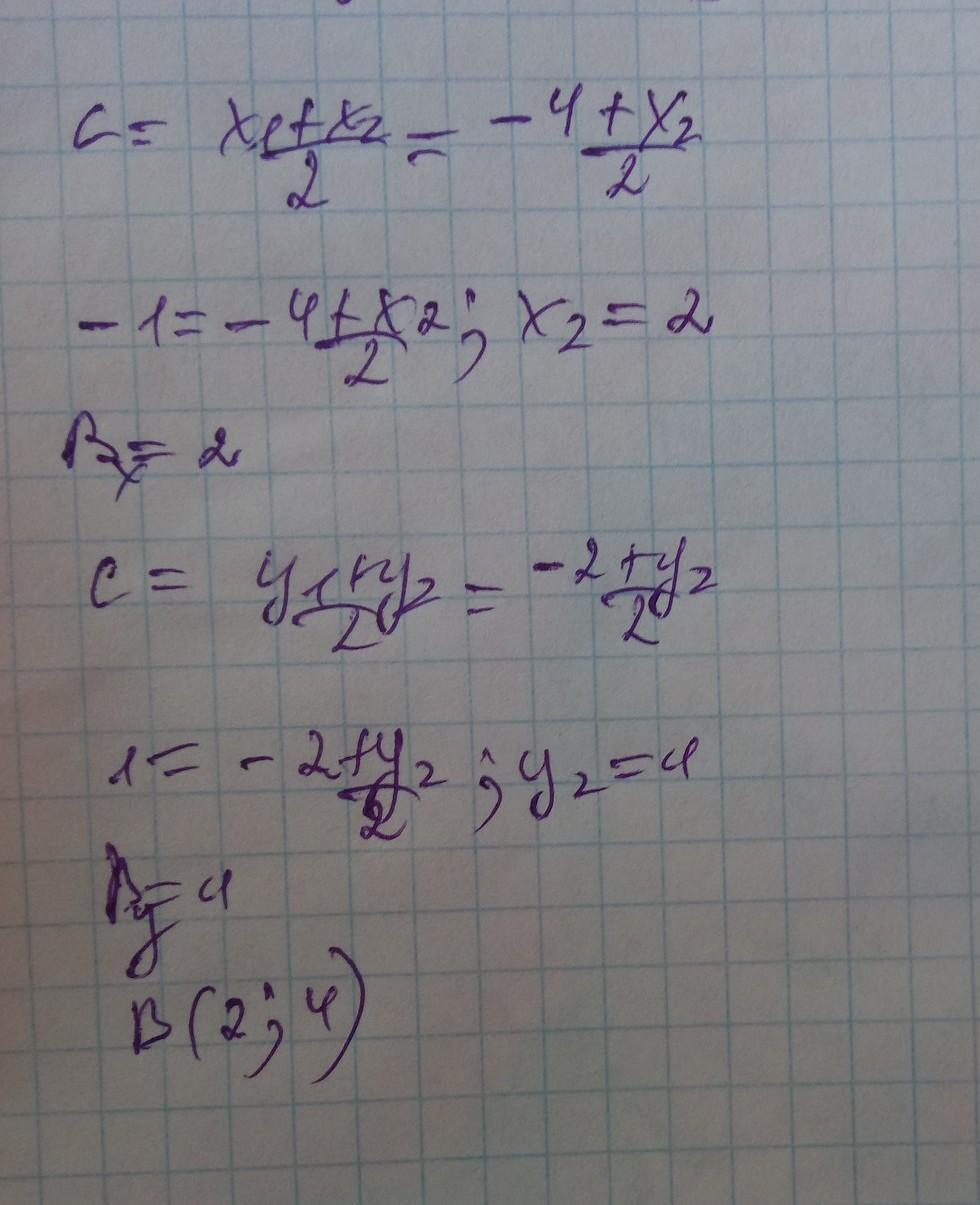 C = x₁+x₂/2 = -4+x₂/2
-1 = -4+x₂/2; x₂ = 2
Bx = 2
C = y₁+y₂/2 = -2+y₂/2
1 = -2+y₂/2; y₂ = 4
By = 4
B(2; 4)